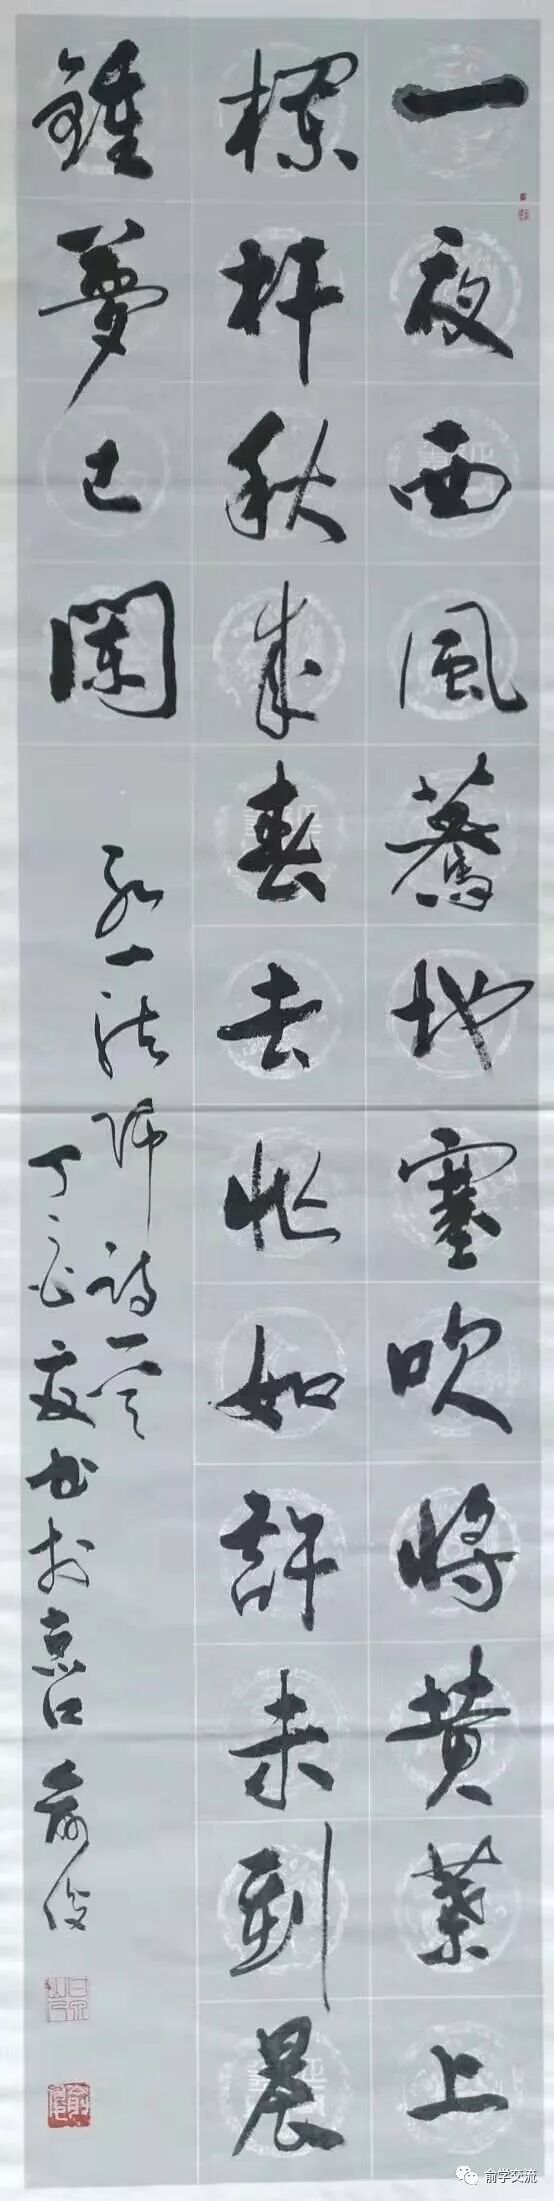 一夜西風驀地寒吹將黄葉上
欄杆秋來春去忙如許未到晨
鍾夢已闌
弘一法师詩一首
丁酉夏书於京口俞俊
俞学交流